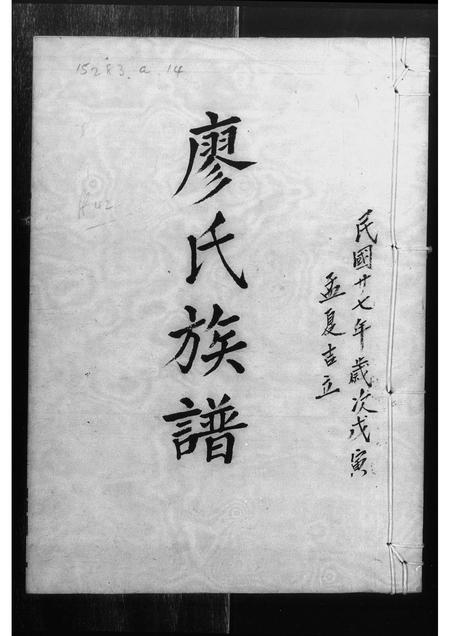 15283.a.14
民國廿七年歲次戊寅
孟夏吉立
廖氏族譜